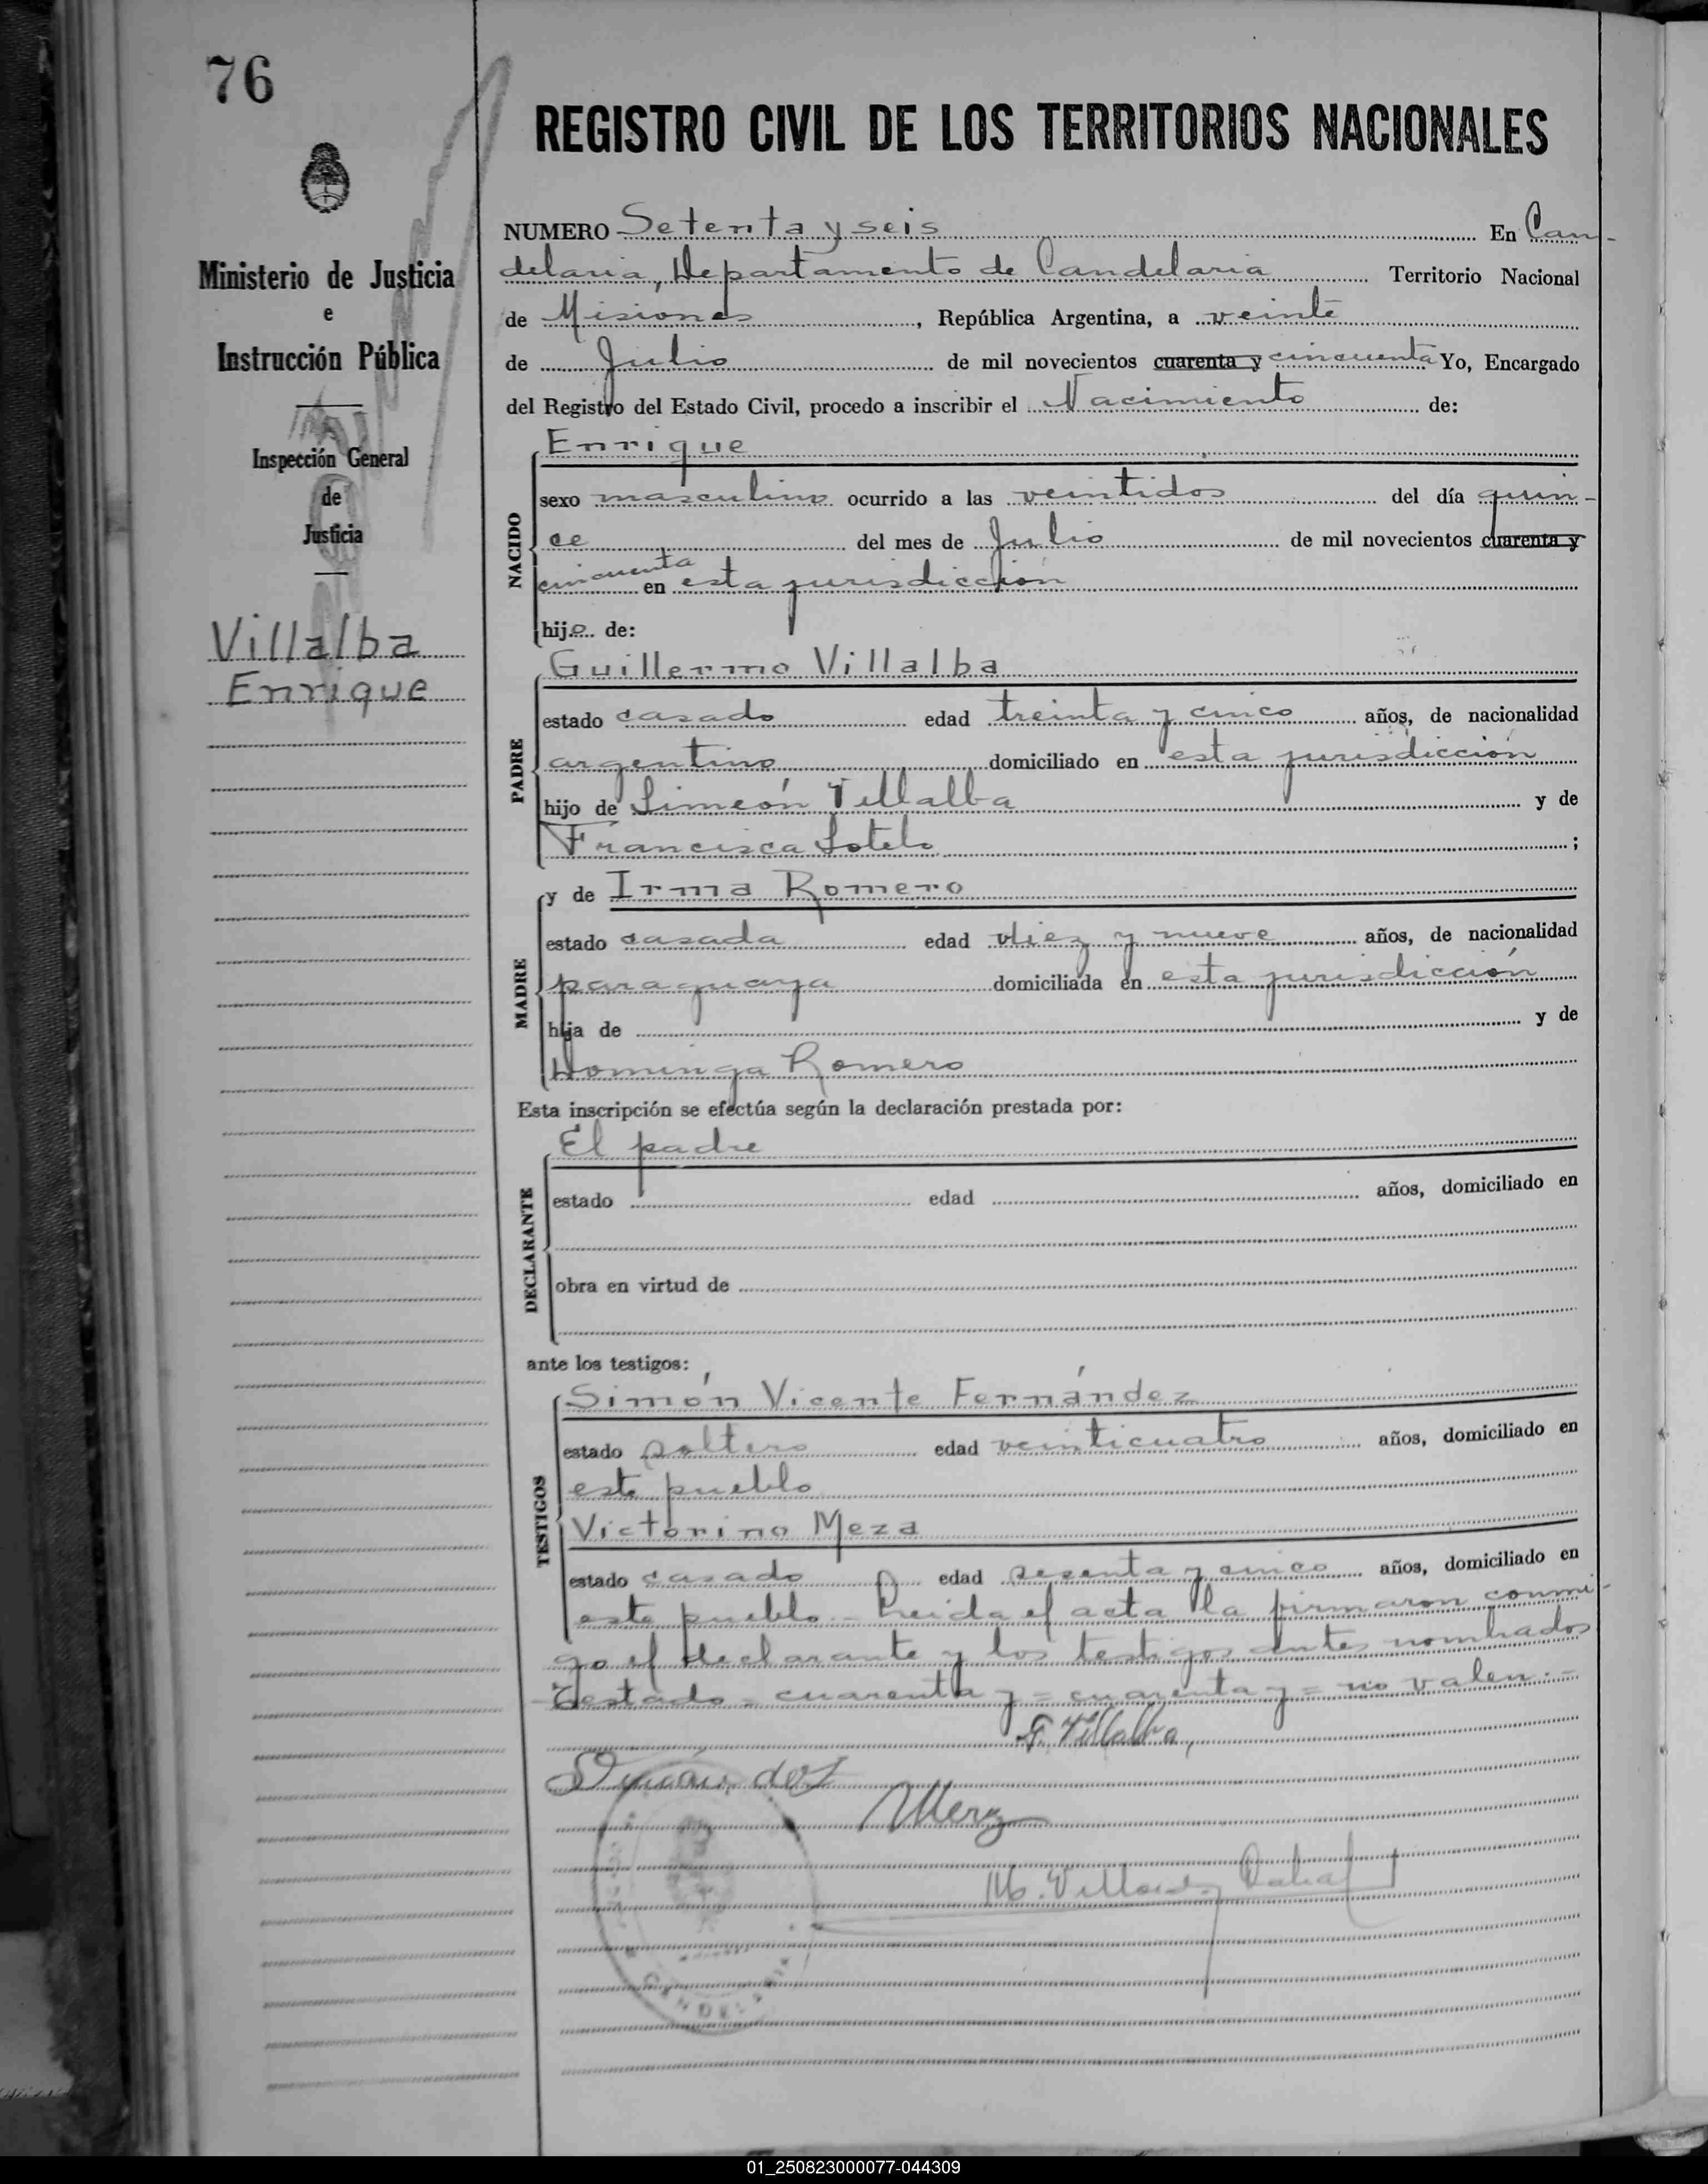 76
Ministerio de Justicia
e
Instrucción Pública
Inspección General
de
Justicia
Villalba
Enrique
REGISTRO CIVIL DE LOS TERRITORIOS NACIONALES
NUMERO Setenta y seis En Can-
delaria, Departamento de Candelaria Territorio Nacional
de Misiones, República Argentina, a veinte
de Julio de mil novecientos cuarenta y cincuenta Yo, Encargado
del Registro del Estado Civil, procedo a inscribir el Nacimiento de:
NACIDO
Enrique
sexo masculino ocurrido a las veintidos del día quin-
ce del mes de Julio de mil novecientos cuarenta y
cincuenta en esta jurisdicción
hijo de:
PADRE
Guillermo Villalba
estado casado edad treinta y cinco años, de nacionalidad
argentino domiciliado en esta jurisdicción
hijo de Simeón Villalba y de
Francisca Sotelo ;
MADRE
y de Irma Romero
estado casada edad diez y nueve años, de nacionalidad
paraguaya domiciliada en esta jurisdicción
hija de y de
Dominga Romero
Esta inscripción se efectúa según la declaración prestada por:
DECLARANTE
El padre
estado edad años, domiciliado en
obra en virtud de
ante los testigos:
TESTIGOS
Simón Vicente Fernández
estado soltero edad veinticuatro años, domiciliado en
este pueblo
Victorino Meza
estado casado edad sesenta y cinco años, domiciliado en
este pueblo - Leida el acta la firmaron conmi-
go el declarante y los testigos antes nombrados
Testado = cuarenta y = cuarenta y = no valen.-
G. Villalba,
Meza
CANDELARIA
01_250823000077-044309